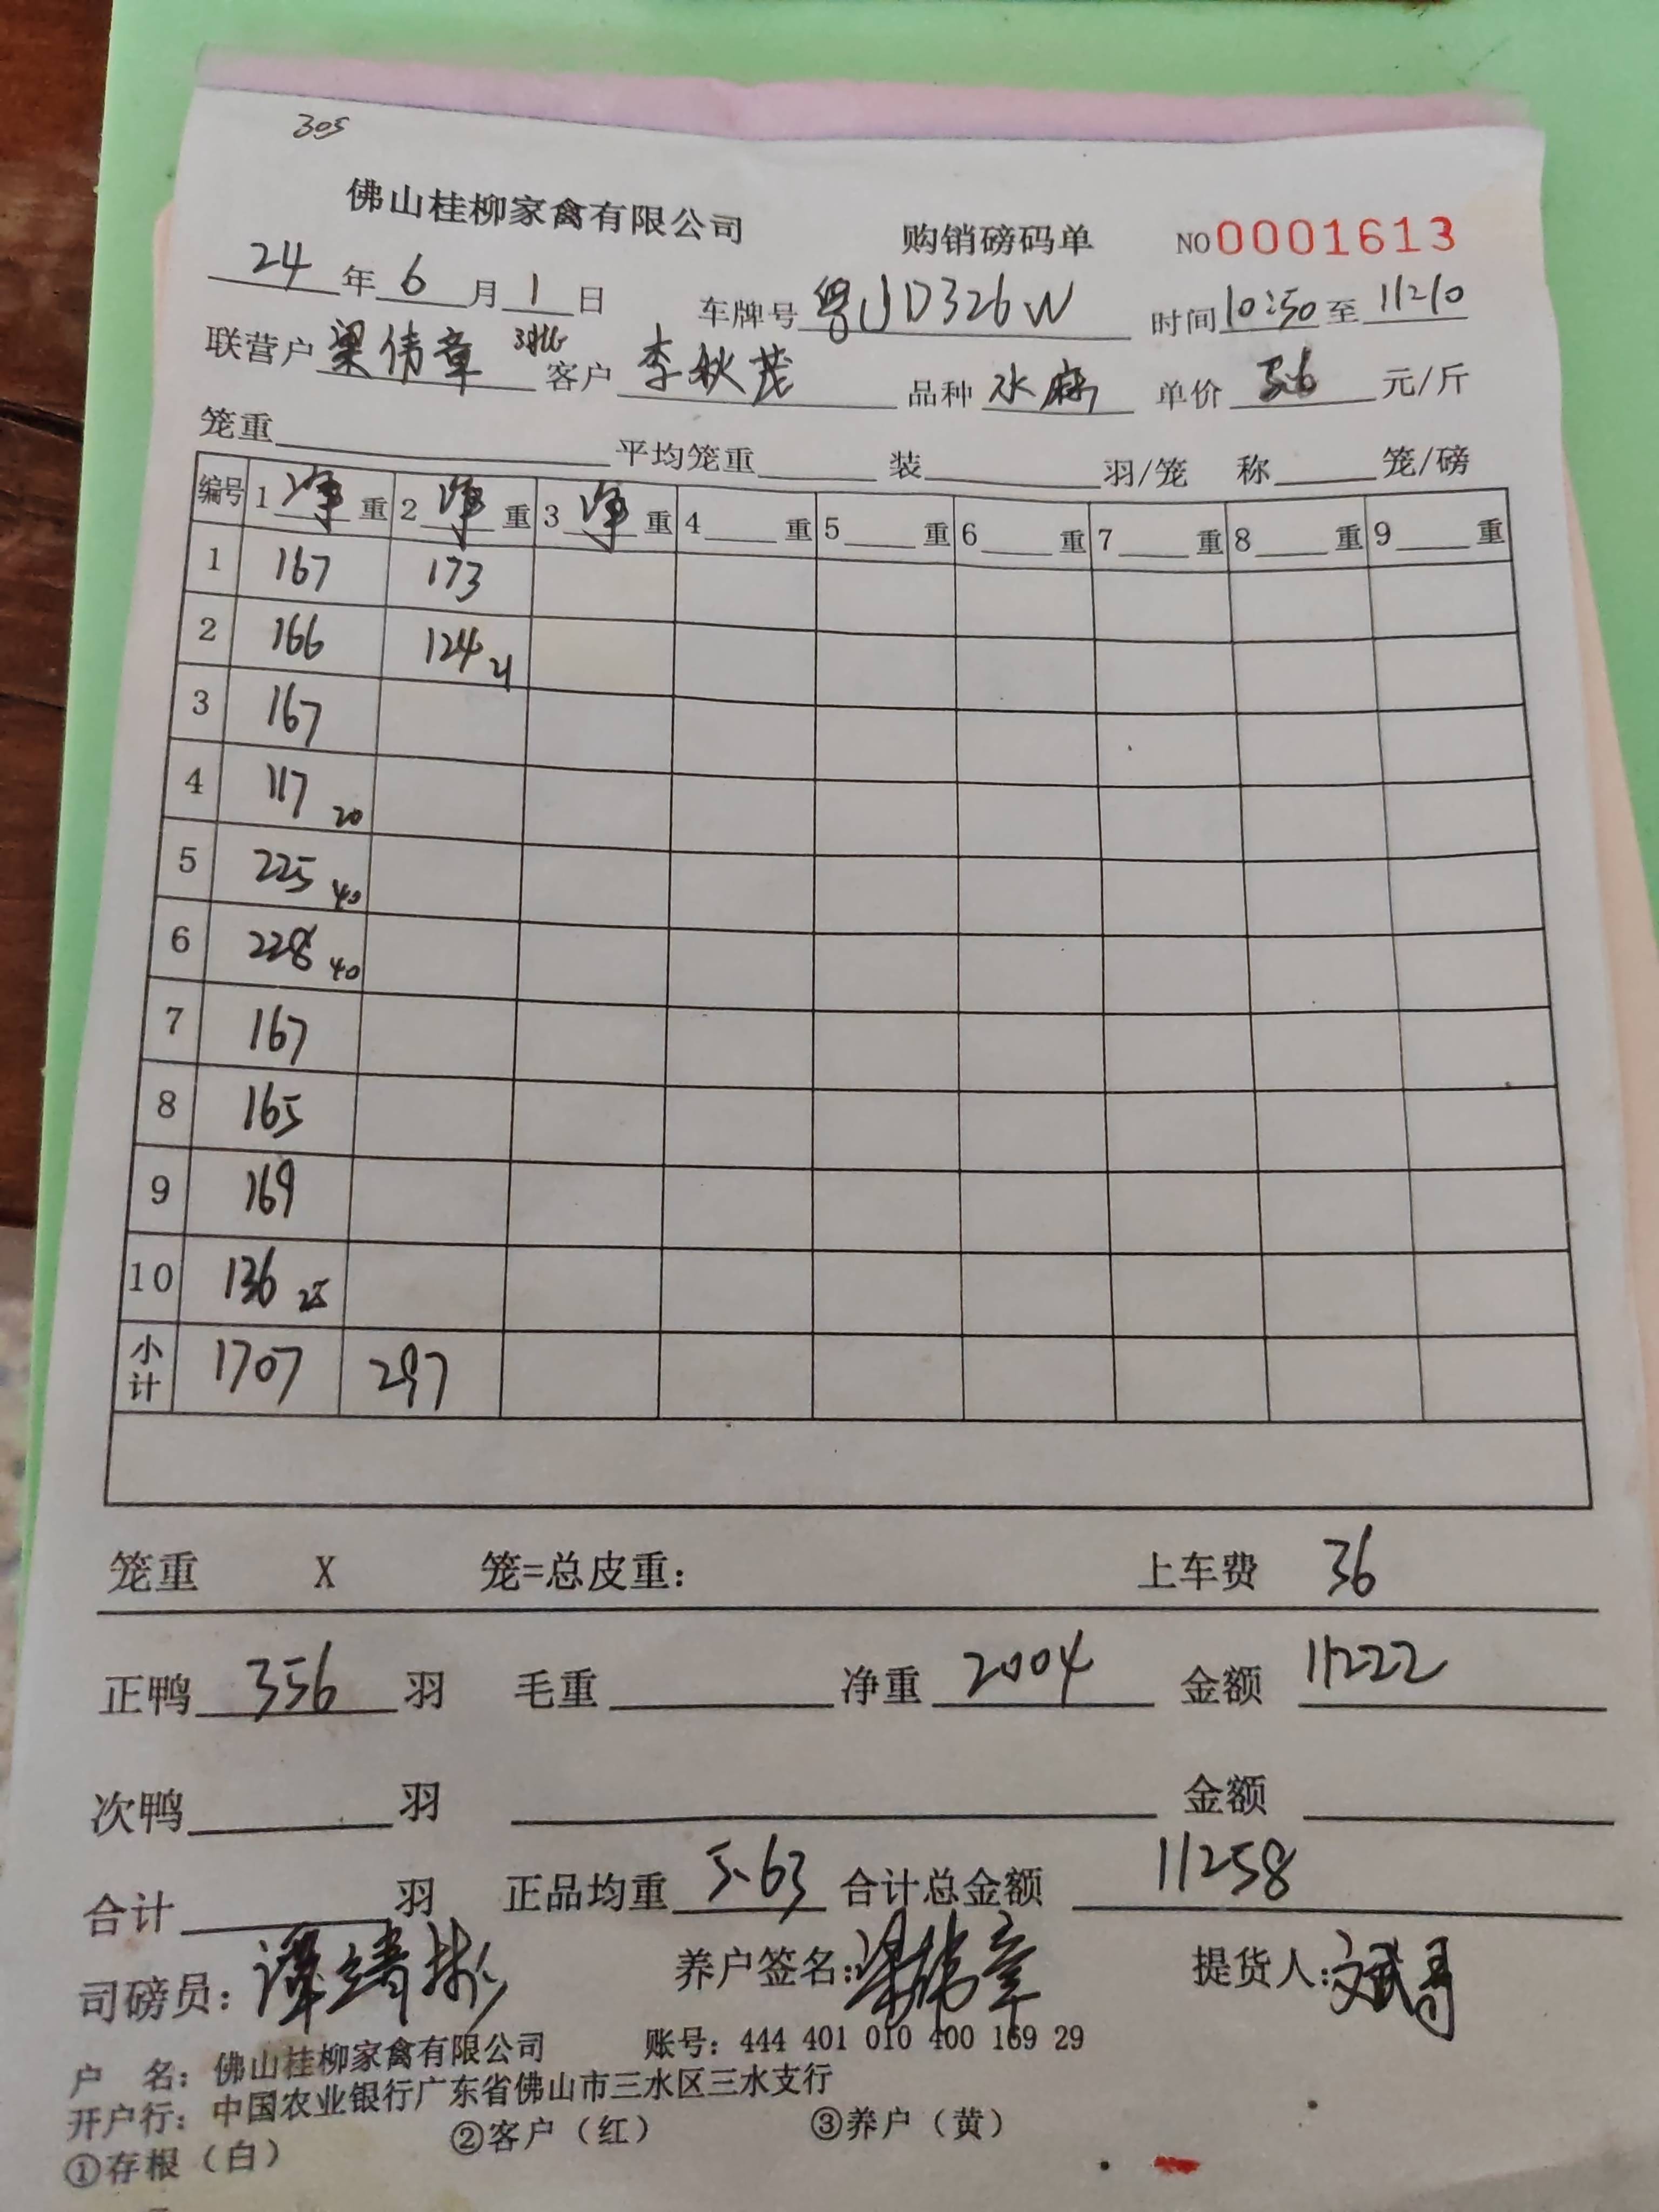 305
佛山桂柳家禽有限公司 购销磅码单 NO 0001613
24年6月1日 车牌号 粤JD326W 时间 10:50 至 11:20
联营户 梁伟章 客户 李秋茂 品种 水麻 单价 5.6 元/斤
笼重 平均笼重 装 羽/笼 称 笼/磅
编号 1 净 重 2 净 重 3 净 重 4 重 5 重 6 重 7 重 8 重 9 重
1 167 173
2 166 124 21
3 167
4 117 20
5 225 40
6 228 40
7 167
8 165
9 169
10 136 25
小计 1707 297
笼重 X 笼=总皮重: 上车费 36
正鸭 356 羽 毛重 净重 2004 金额 11222
次鸭 羽 金额
合计 羽 正品均重 5.63 合计总金额 11258
司磅员: 谭靖彬 养户签名: 梁伟章 提货人: 文武哥
户 名: 佛山桂柳家禽有限公司 账号: 444 401 010 400 169 29
开户行: 中国农业银行广东省佛山市三水区三水支行
①存根（白） ②客户（红） ③养户（黄）